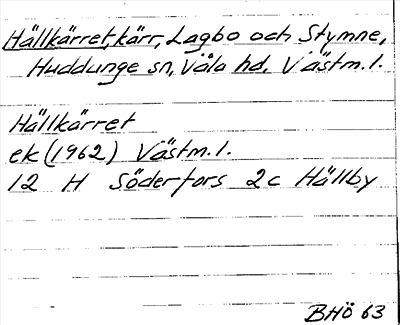 Hällkärret, kärr, Lagbo och Stymne,
Huddunge sn, Våla hd. Västm.l.
Hällkärret
ek (1962) Västm.l.
12 H Söderfors 2c Hällby
BHÖ 63